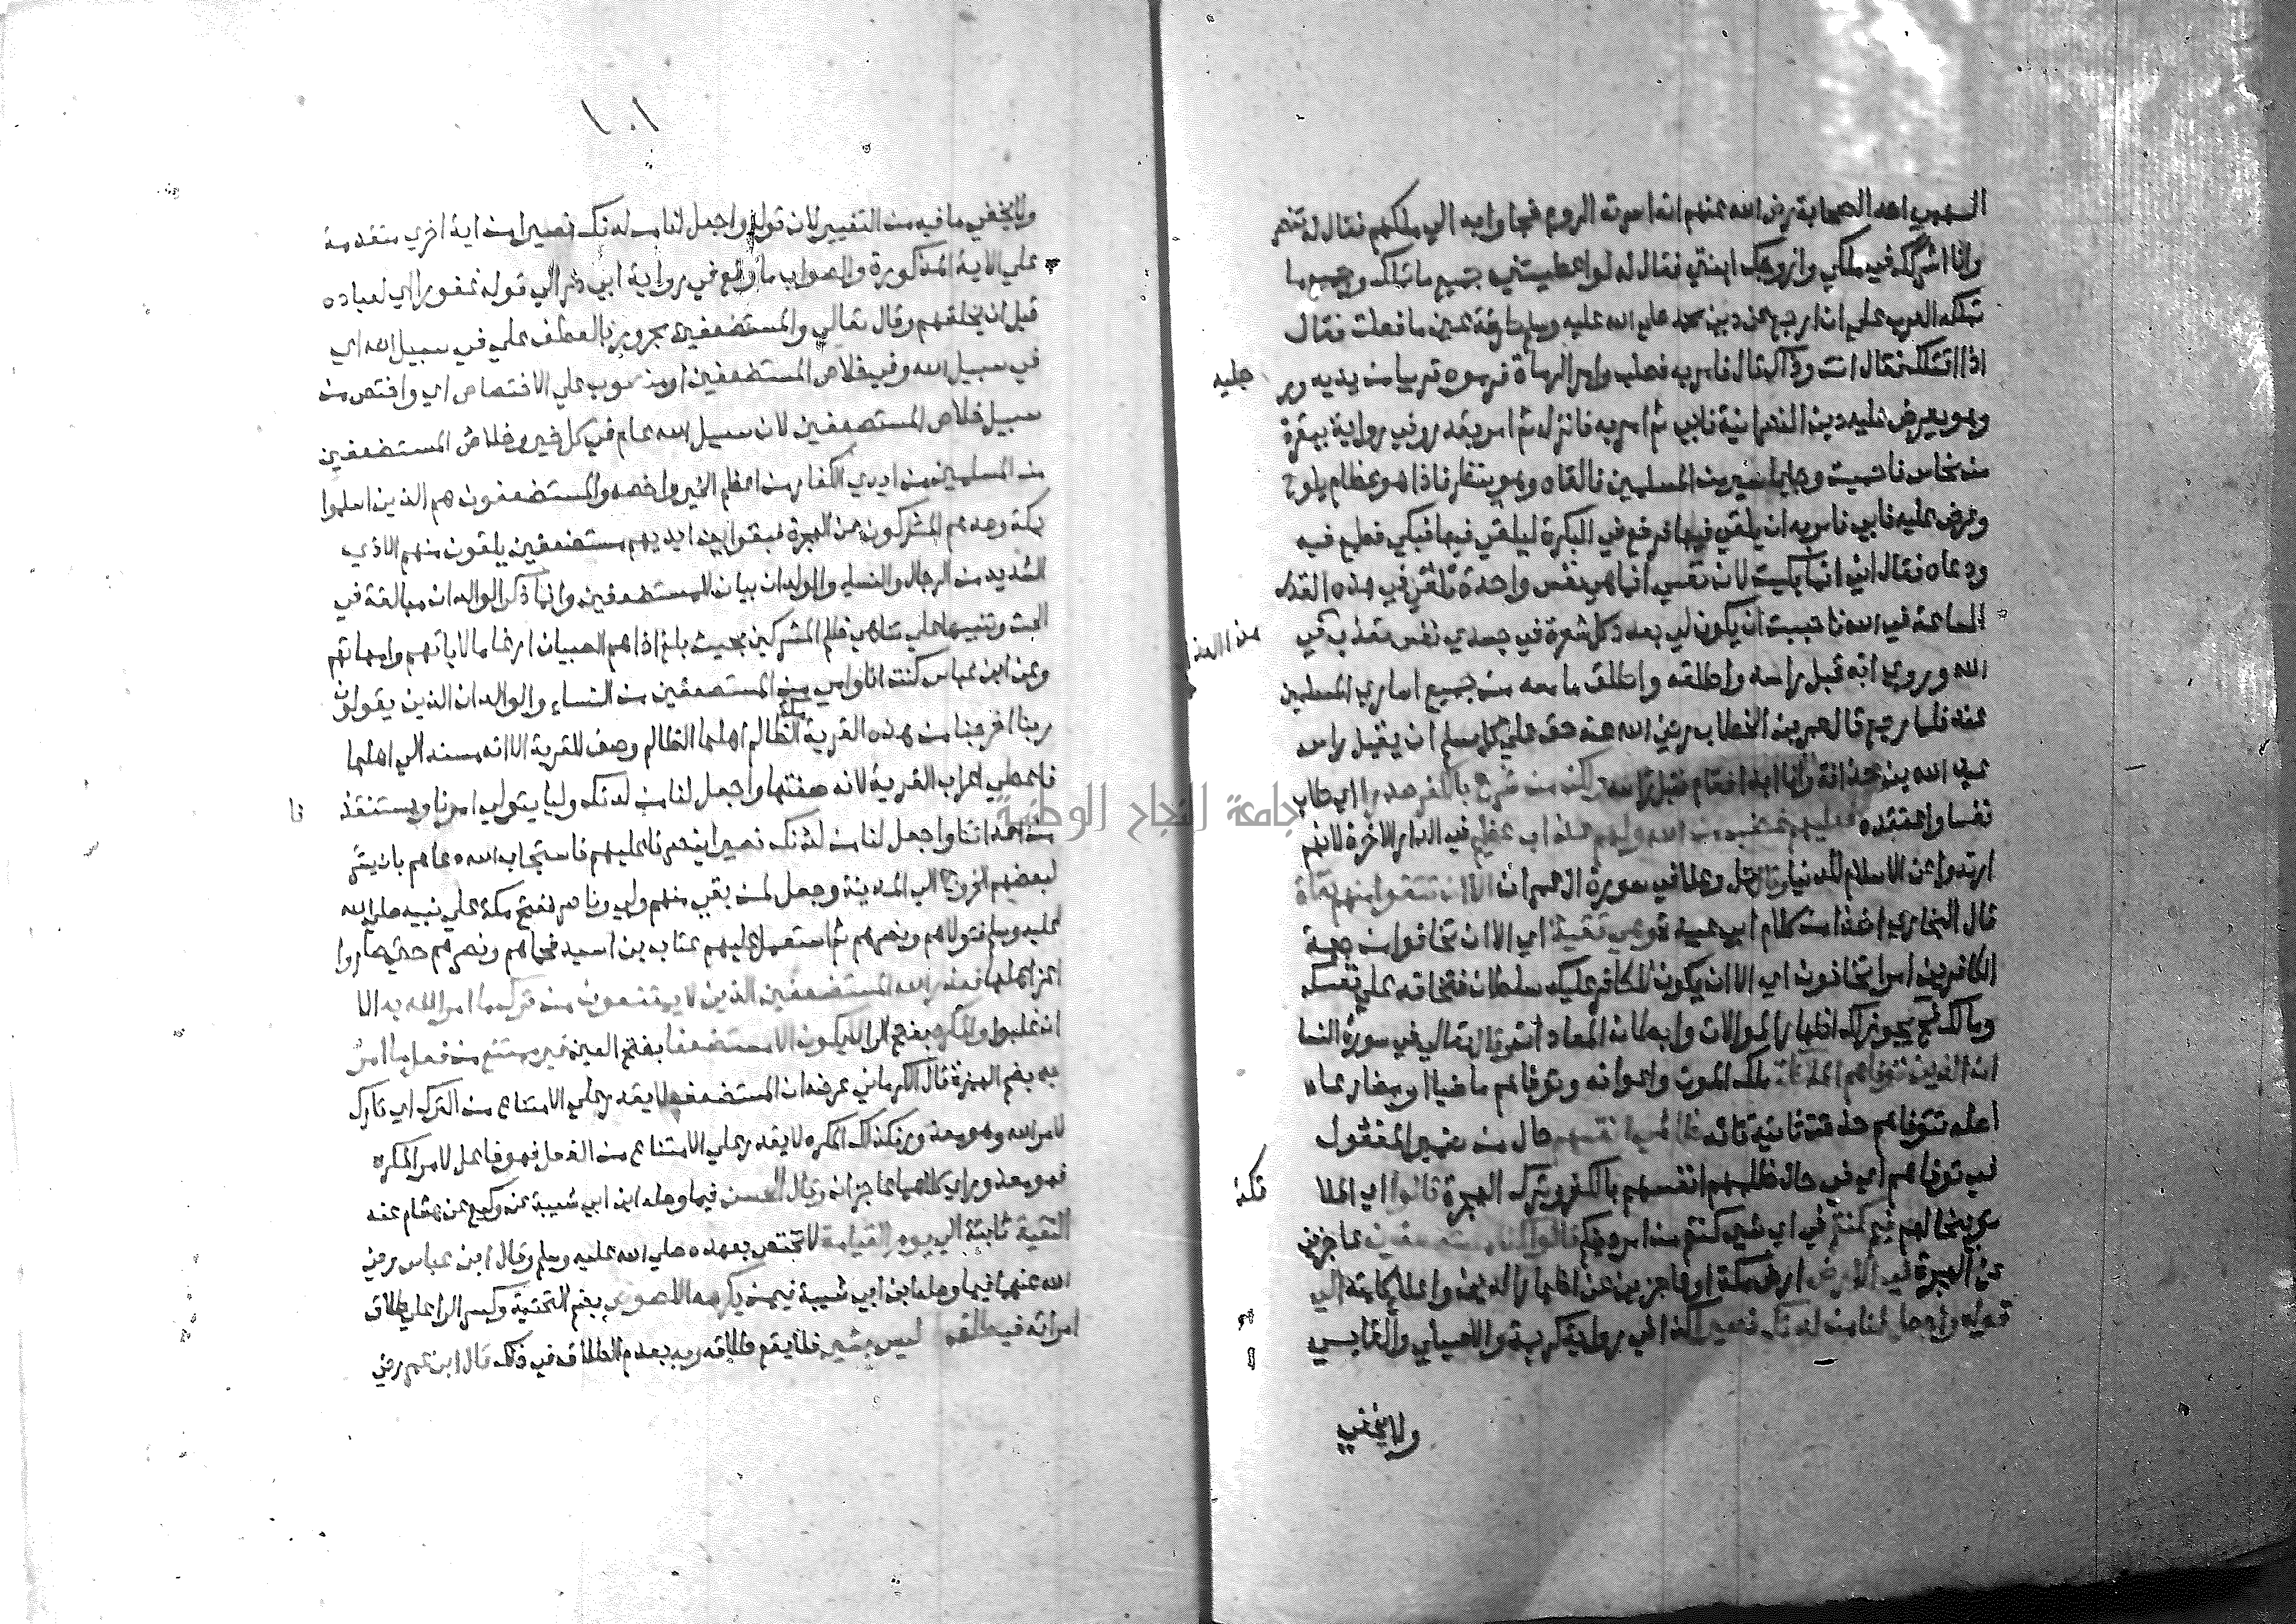 السهمي احد الصحابة رضي الله عنهم انه اسرته الروم فجاوا به الي ملكهم فقال له تنصر
وانا اشركك في ملكي وازوجك ابنتي فقال له لو اعطيتني جميع ما تملك وجميع ما
تملكه العرب علي ان ارجع عن دين محمد صلي الله عليه وسلم طرفة عين ما فعلت فقال
اذا اقتلك فقال انت وذاك قال فامر به فصلب وامر الرماة فرموه قريبا من يديه ور
جليه
وهو يعرض عليه دين النصرانية فابي ثم امر به فانزل ثم امر بقدر وفي رواية ببقرة
من نحاس فاحميت وجاباسير من المسلمين فالقاه وهو ينظر فاذا هو عظام يلوح
وعرض عليه فابي فامر به ان يلقي فيها فرفع في البكرة ليلقي فيها فبكي فطمع فيه
ودعاه فقال اني انما بكيت لان نفسي انما هي نفس واحدة تلقي في هذه القدر
الساعة في الله فاحببت ان يكون لي بعدد كل شعرة في جسدي نفس تعذب في
الله وروي انه قبل راسه واطلقه واطلق ما معه من جميع اساري المسلمين
عنده فلما رجع قال عمر بن الخطاب رضي الله عنه حق علي كل مسلم ان يقبل راس
عبد الله بن حذافة وانا ابدا فقام فقبل راسه ولكن من شرح بالكفر صدرا اي طاب
نفسا واعتقده فعليهم غضب من الله ولهم عذاب عظيم في الدار الاخرة لانهم
ارتدوا عن الاسلام للدنيا وقال جل وعلا في سورة ال عمران الا ان تتقوا منهم تقاة
قال البخاري اخذا من كلام ابي عبيدة وهي تقية اي الا ان تخافوا من جهة
الكافرين امرا تخافون اي الا ان يكون للكافر عليك سلطان فتخافه علي نفسك
ومالك فح يجوز لك اظهار الموالات وابطان المعاداة وقال تعالي في سورة النسا
ان الذين توفاهم الملائكة ملك الموت واعوانه وتوفاهم ماضيا او مضارعا
اصله تتوفاهم حذفت ثانية تائه ظالمي انفسهم حال من ضمير المفعول
في توفاهم اي في حال ظلمهم انفسهم بالكفر وترك الهجرة قالوا اي الملا
ئكة
توبيخا لهم فيم كنتم في اي شي كنتم من امر دينكم قالوا كنا مستضعفين عاجزين
عن الهجرة في الارض ارض مكة او عاجزين عن اظهار الدين واعلا كلمته الي
قوله واجعل لنا من لدنك نصيرا كذا في رواية كريمة والاصيلي والقابسي
ولا يخفي
١٠١
ولا يخفي ما فيه من التغيير لان قوله واجعل لنا من لدنك نصيرا من اية اخري متقدمة
علي الاية المذكورة والصواب ما وقع في رواية ابي ذر الي قوله عفورا اي لعباده
قبل ان يخلقهم وقال تعالي والمستضعفين مجرور بالعطف علي في سبيل الله اي
في سبيل الله وفي خلاص المستضعفين او منصوب علي الاختصاص اي واختص من
سبيل خلاص المستضعفين لان سبيل الله عام في كل خير وخلاص المستضعفين
من المسلمين من ايدي الكفار من اعظم الخير واخصه والمستضعفون هم الذين اسلموا
بمكة وصدهم المشركون عن الهجرة فبقوا بين ايديهم مستضعفين يلقون منهم الاذي
الشديد من الرجال والنساء والولدان بيان للمستضعفين وانما ذكر الولدان مبالغة في
الحث وتنبيها علي تناهي ظلم المشركين بحيث بلغ اذاهم الصبيان ارغاما لابائهم وامهاتهم
وعن ابن عباس كنت انا وامي من المستضعفين من النساء والولدان الذين يقولون
ربنا اخرجنا من هذه القرية الظالم اهلها الظالم وصف للقرية الا انه مسند الي اهلها
فاعطي اعراب القرية لانه صفتها واجعل لنا من لدنك وليا يتولي امرنا ويستنقذ
نا
من اعدائنا واجعل لنا من لدنك نصيرا ينصرنا عليهم فاستجاب الله دعاهم بان يسر
لبعضهم الخروج الي المدينة وجعل لمن بقي منهم ولي وناصر بفتح مكة علي نبيه صلي الله
عليه وسلم فتولاهم ونصرهم ثم استعمل عليهم عتاب بن اسيد فحماهم ونصرهم حتي صاروا
اعز اهلها فعذر الله المستضعفين الذين لا يمتنعون من ترك ما امر الله به الا
ان غلبوا والمكره بفتح الرا لا يكون الا مستضعفا بفتح العين غير ممتنع من فعل ما امر
به بضم الهمزة قال الكرماني غرضه ان المستضعف لا يقدر علي الامتناع من الترك اي تارك
لامر الله وهو معذور فكذلك المكره لا يقدر علي الامتناع من الفعل فهو فاعل لامر المكره
فهو معذور اي كلاهما عاجزان وقال الحسن فيما وصله ابن ابي شيبة عن وكيع عن هشام عنه
التقية ثابتة الي يوم القيامة لا تختص بعهده صلي الله عليه وسلم وقال ابن عباس رضي
الله عنهما فيما وصله ابن ابي شيبة فيمن يكرهه اللصوص بضم التحتية وكسر الرا علي طلاق
امراته فيطلقها ليس بشي فلا يقع طلاقه وبه بعدم الطلاق في ذلك قال ابن عمر رضي
جامعة النجاح الوطنية